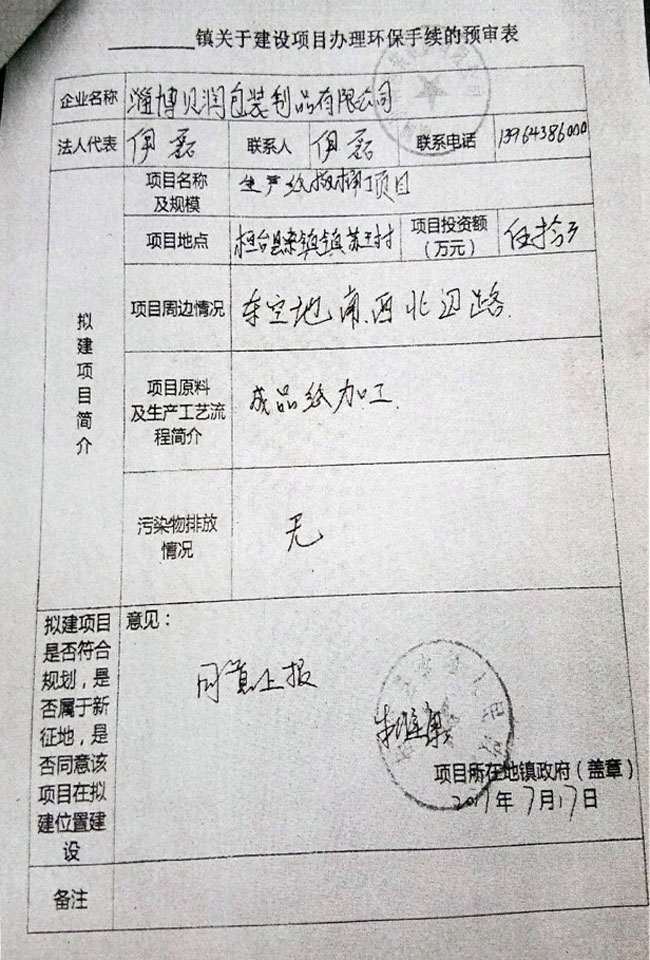 镇关于建设项目办理环保手续的预审表
企业名称 淄博贝润包装制品有限公司
法人代表 伊磊 联系人 伊磊 联系电话 13964386000
项目名称
及规模
生产纸板桶项目
项目地点 桓台县索镇镇苏王村 项目投资额
(万元)
伍拾万
拟建项目简介
项目周边情况 东空地南.西北边路.
项目原料
及生产工艺流
程简介
成品纸加工.
污染物排放
情况
无
拟建项目
是否符合
规划，是
否属于新
征地，是
否同意该
项目在拟
建位置建
设
意见：
同意上报
项目所在地镇政府（盖章）
2017年7月17日
备注